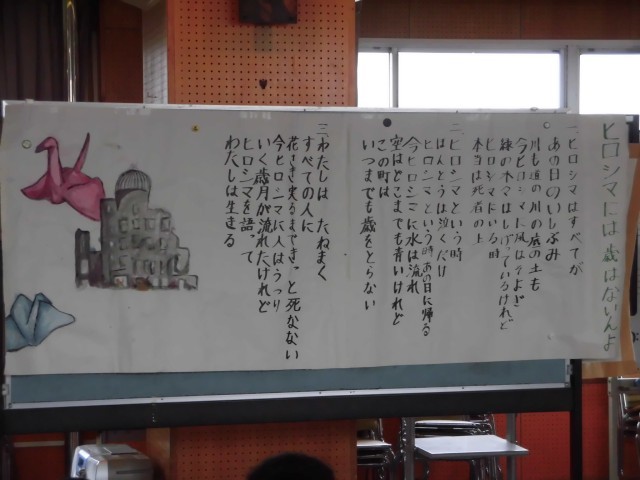 ヒロシマには歳はないんよ
一、ヒロシマはすべてが
あの日のいしぶみ
川も道の川の底の土も
今ヒロシマに風はそよぎ
緑の木々はしげっているけれど
ヒロシマにいる時
本当は死者の上
二、ヒロシマという時
ほんとうは泣くだけ
ヒロシマという時あの日に帰る
今ヒロシマに水は流れ
空はどこまでも青いけれど
この町は
いつまでも歳をとらない
三、わたしは たねまく
すべての人に
花さき実るまできっと死なない
今ヒロシマに人はうつり
いく歳月が流れたけれど
ヒロシマを語って
わたしは生きる